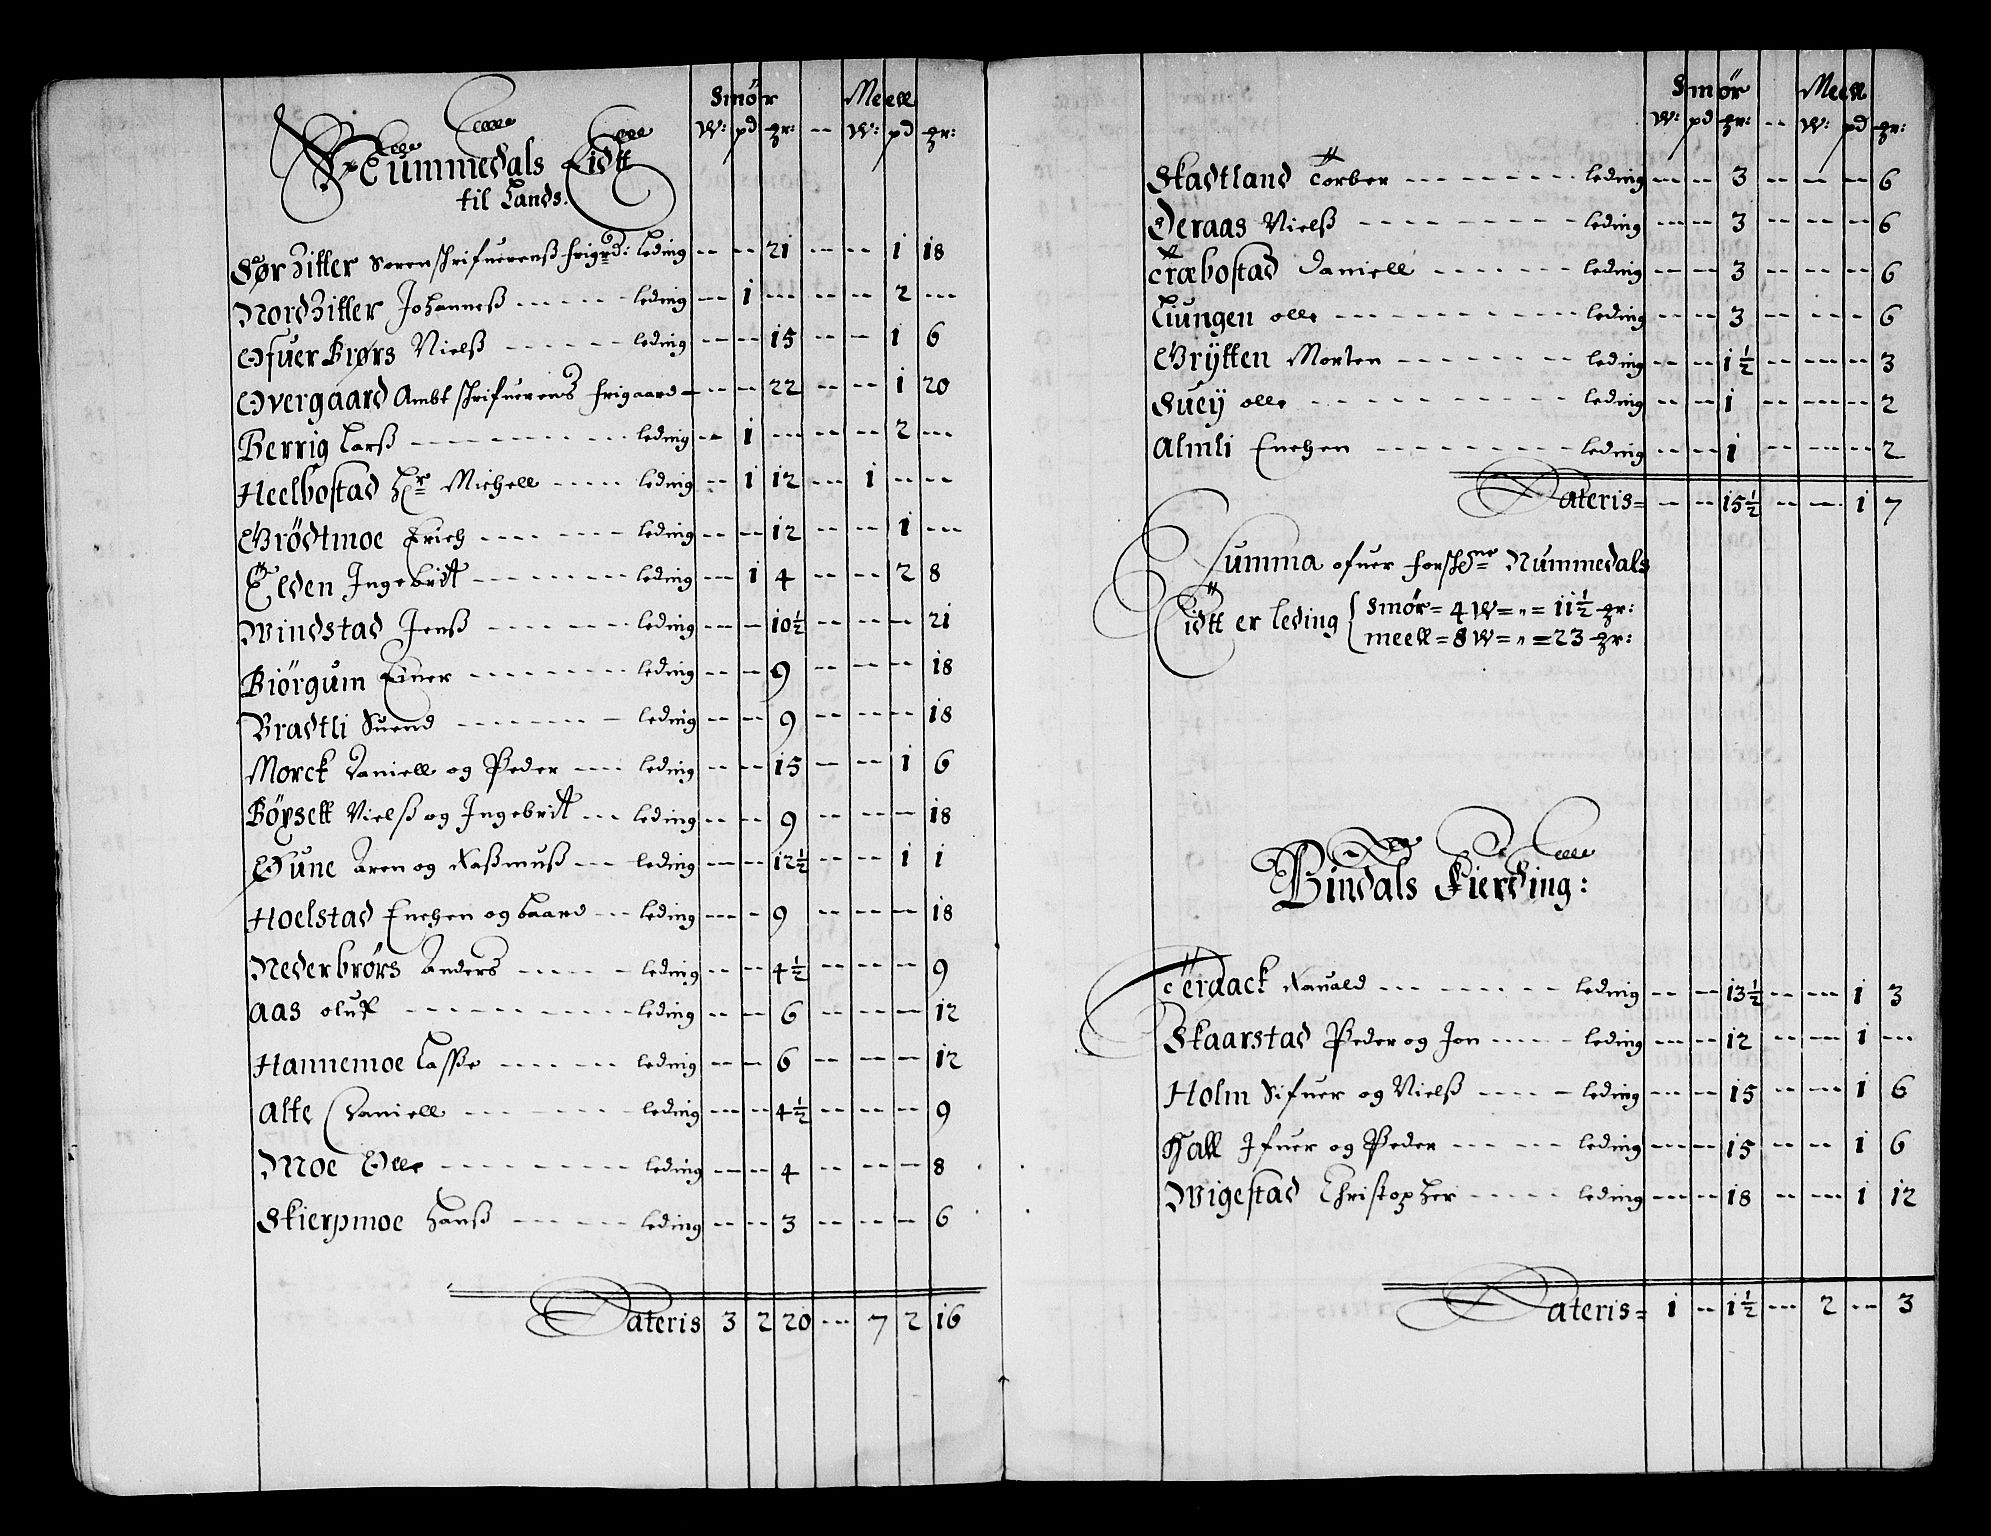 Smør Meell
W: pd ꝑr: -- W: pd ꝑr:
Nummedals Lidtt
til Lands.
Sør Zitter Sorenschrifuerenß frigrd: Leding -- -- 21 -- -- 1 18
Nord Zitter Johanneß ----- leding -- 1 -- -- -- 2 --
Ofuer Brørs Nielß ----- leding -- -- 15 -- -- 1 6
Overgaard Ambt schrifuerens frigaard -- -- 22 -- -- 1 20
Berrig Larß ----- leding -- 1 -- -- -- 2 --
Heelbostad Hr Michell ----- leding -- 1 12 -- 1 -- --
Grödtmoe Erich ----- leding -- -- 12 -- -- 1 --
Elden Ingebritt ----- leding -- 1 4 -- -- 2 8
Windstad Jenß ----- leding -- -- 10½ -- -- -- 21
Biörgum Einer ----- leding -- -- 9 -- -- -- 18
Bradtli Suend ----- leding -- -- 9 -- -- -- 18
Morck Daniell og Peder ----- leding -- -- 15 -- -- 1 6
Böysett Nielß og Ingebritt --- leding -- -- 9 -- -- -- 18
Dune Aren og Raßmuß --- leding -- -- 12½ -- -- 1 1
Hoelstad Enchen og baard --- leding -- -- 9 -- -- -- 18
Nederbrørs Anders ----- leding -- -- 4½ -- -- -- 9
Aas oluf ----- leding -- -- 6 -- -- -- 12
Hannemoe Lasse ----- leding -- -- 6 -- -- -- 12
Alte Daniell ----- leding -- -- 4½ -- -- -- 9
Moe Olle ----- leding -- -- 4 -- -- -- 8
Skierpmoe Hanß ----- leding -- -- 3 -- -- -- 6
Lateris 3 2 20 -- 7 2 16
Smør Meell
W: pd ꝑr: -- W: pd ꝑr:
Stadtland Torber ----- leding -- -- 3 -- -- -- 6
Deraas Nielß ----- leding -- -- 3 -- -- -- 6
Træbostad Daniell ----- leding -- -- 3 -- -- -- 6
Liungen olle ----- leding -- -- 3 -- -- -- 6
Grÿtten Morten ----- leding -- -- 1½ -- -- -- 3
Sueÿ olle ----- leding -- -- 1 -- -- -- 2
Almli Enchen ----- leding -- -- 1 -- -- -- 2
Lateris= -- -- 15½ -- -- 1 7
Summa ofuer forschne Nummedals
Lidtt er leding { Smør= 4 W= „ = 11½ ꝑr:
meell= 8 W= „ = 23 ꝑr:
Bindals Fierding:
Terdack Rauald ----- leding -- -- 13½ -- -- 1 3
Skaarstad Peder og Jon ----- leding -- -- 12 -- -- 1 --
Holm Sifuer og Nielß ----- leding -- -- 15 -- -- 1 6
Hall Ifuer og Peder ----- leding -- -- 15 -- -- 1 6
Wigestad Christopher ----- leding -- -- 18 -- -- 1 12
Lateris= 1 -- 1½ -- 2 -- 3